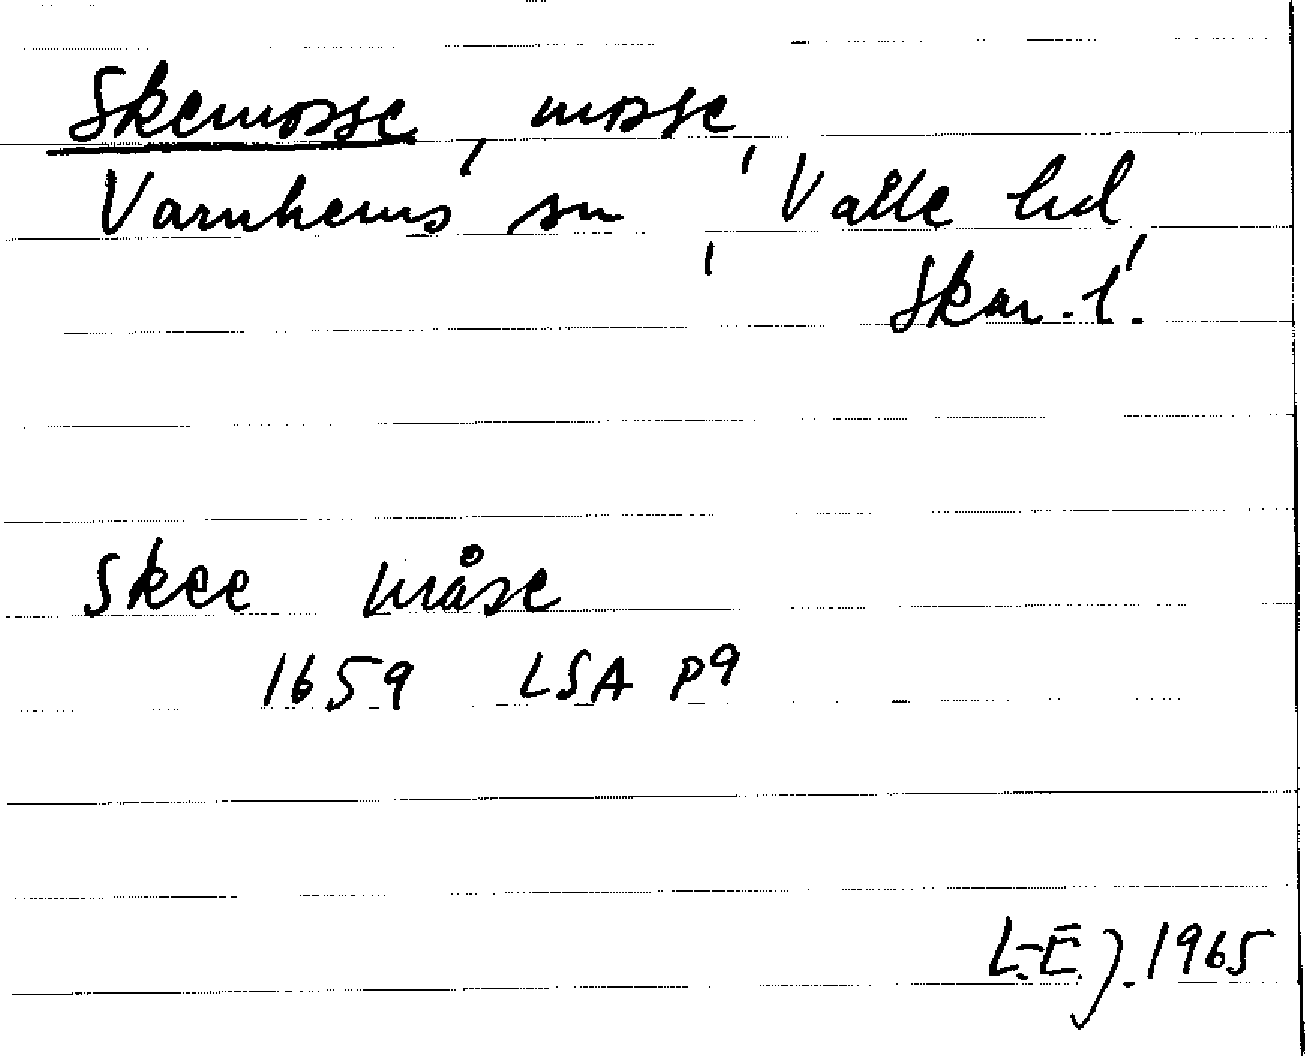 Skemosse, mosse,
Varnhems sn, Valle hd,
Skar. l.
Skee måse
1659 LSA P9
L-E J. 1965